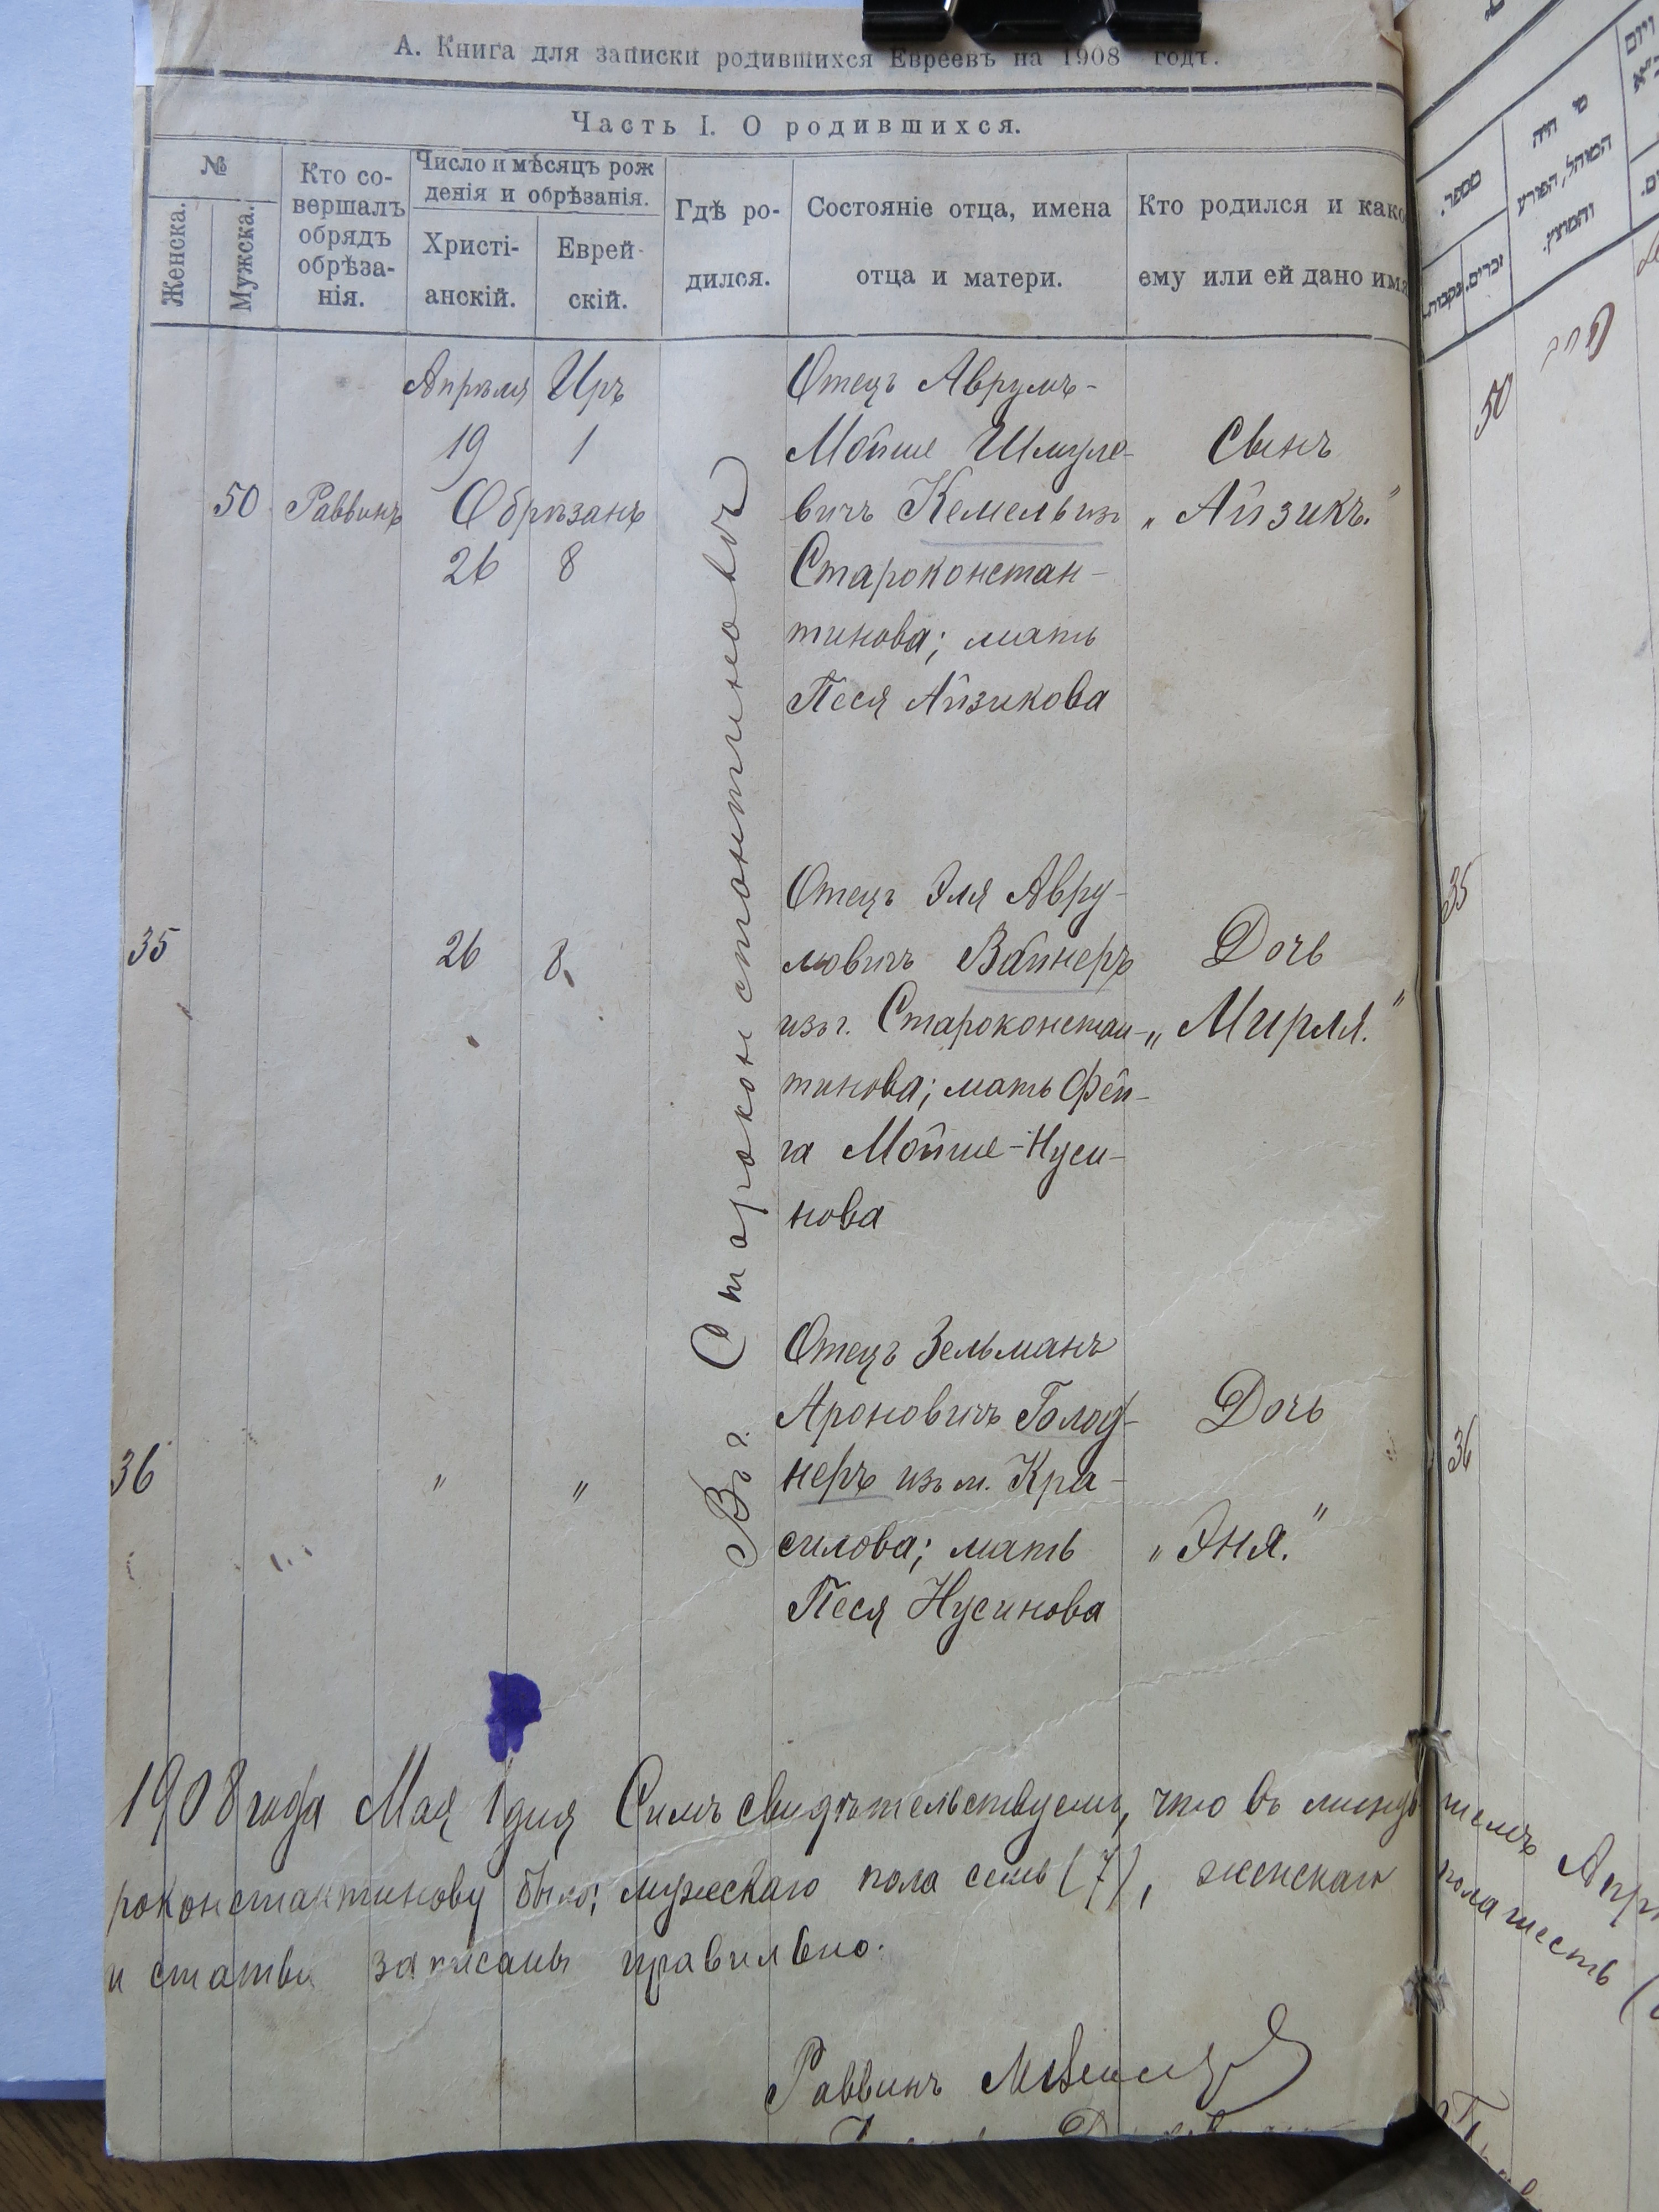 А. Книга для записки родившихся Евреевъ на 1908 годъ.
Часть I. О родившихся.
№
Женска.
Мужска.
Кто со-
вершалъ
обрядъ
обрѣза-
нія.
Число и мѣсяцъ рож
денія и обрѣзанія.
Христі-
анскій.
Еврей-
скій.
Гдѣ ро-
дился.
Состояніе отца, имена
отца и матери.
Кто родился и како
ему или ей дано имя
Апрѣля Иръ
19 1
50 Раввинъ Обрѣзанъ
26 8
Въ г. Староконстантиновѣ
Отецъ Аврумъ-
Мойше Шмуле-
вичъ Кемельизъ
Староконстан-
тинова; мать
Песя Айзикова
Сынъ
„Айзикъ."
35 26 8
Отецъ Эля Авру-
мовичъ Вайнеръ
изъ г. Староконстан-
тинова; мать Фей-
га Мойше-Нуси-
нова
Дочь
„Мирля."
36 " "
Отецъ Зельманъ
Ароновичъ Голод-
неръ изъ м. Кра-
силова; мать
Песя Нусинова
Дочь
„Эня."
1908 года Мая 1 дня Симъ свидѣтельствуемъ, что въ
роконстантинову было: мужескаго пола семь (7), женскаго
и статьи записаны правильно.
Раввинъ
מספר.
נקבות.
זכרים.
מי היה
המוהל, הפורע
והמוצץ.
50
35
36
пола шесть